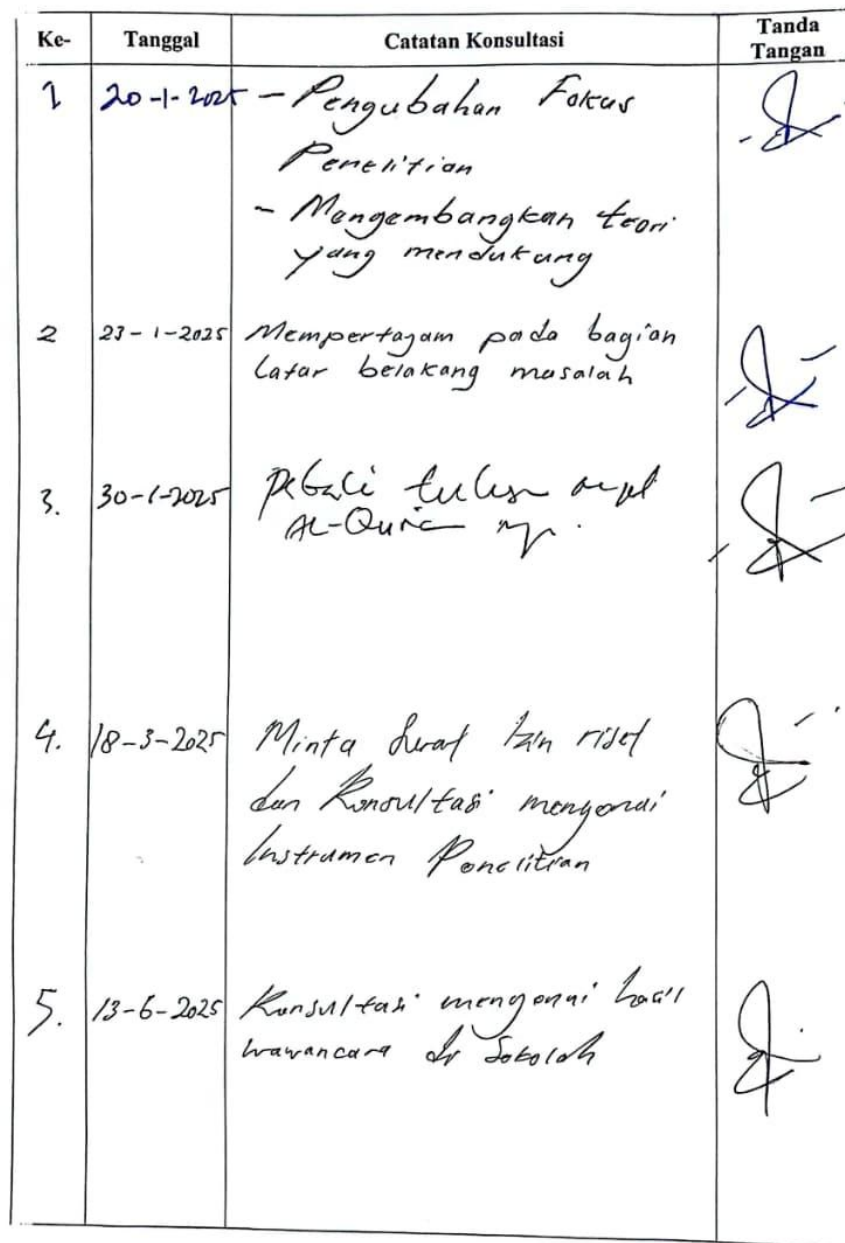 Ke- Tanggal Catatan Konsultasi Tanda Tangan
1 20-1-2025 - Pengubahan Fokus
Penelitian
- Mengembangkan teori
yang mendukung
2 23-1-2025 Mempertajam pada bagian
latar belakang masalah
3. 30-1-2025
AL-Qur'an
4. 18-3-2025 Minta Surat Izin riset
dan Konsultasi mengenai
Instrumen Penelitian
5. 13-6-2025 Konsultasi mengenai hasil
wawancara di Sekolah